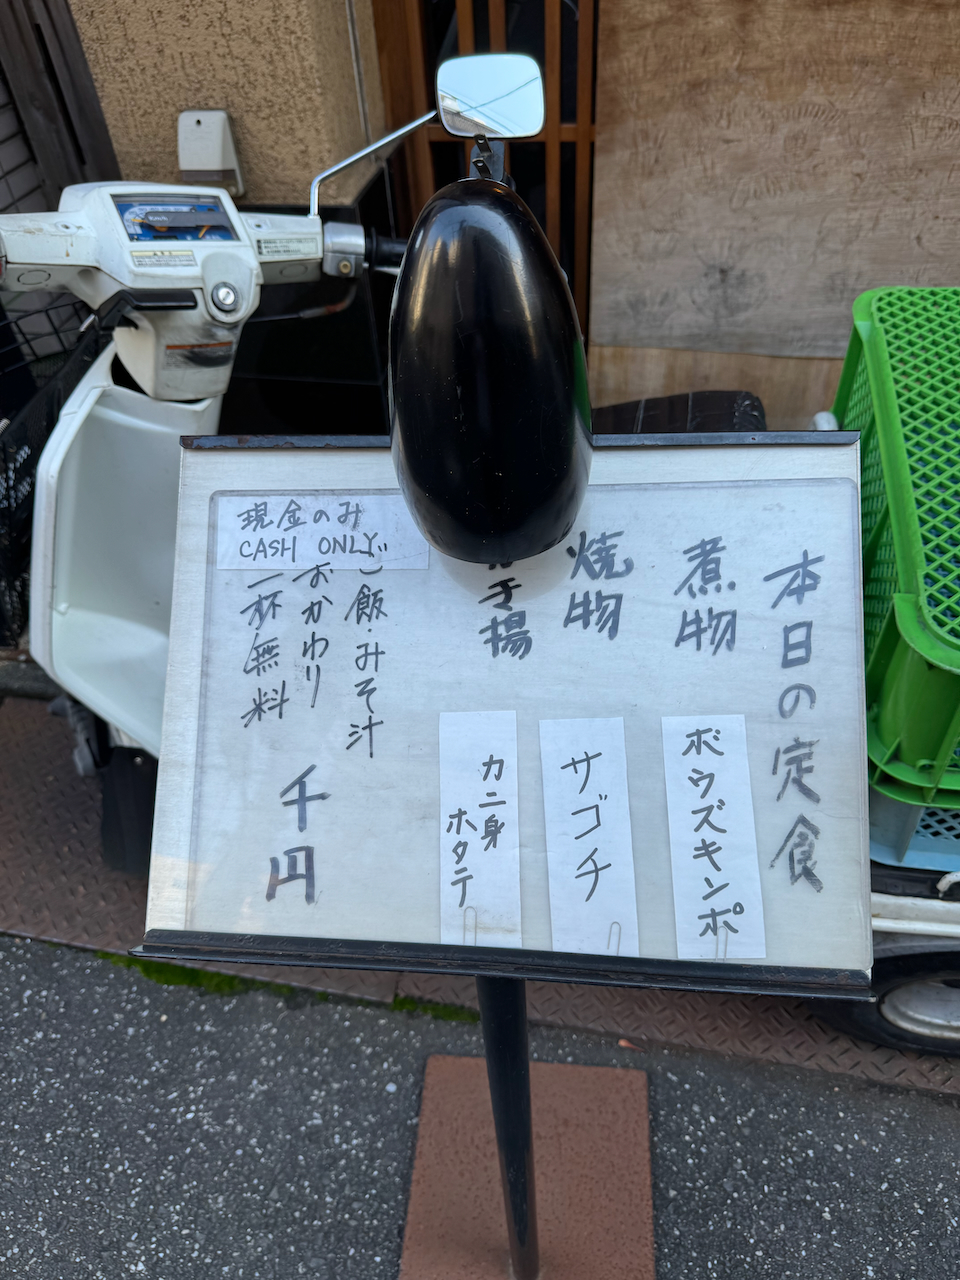 本日の定食
煮物
ボウズギンポ
焼物
サゴチ
き揚
カニ身
ホタテ
現金のみ
CASH ONLY
ご飯・みそ汁
おかわり
一杯無料
千円